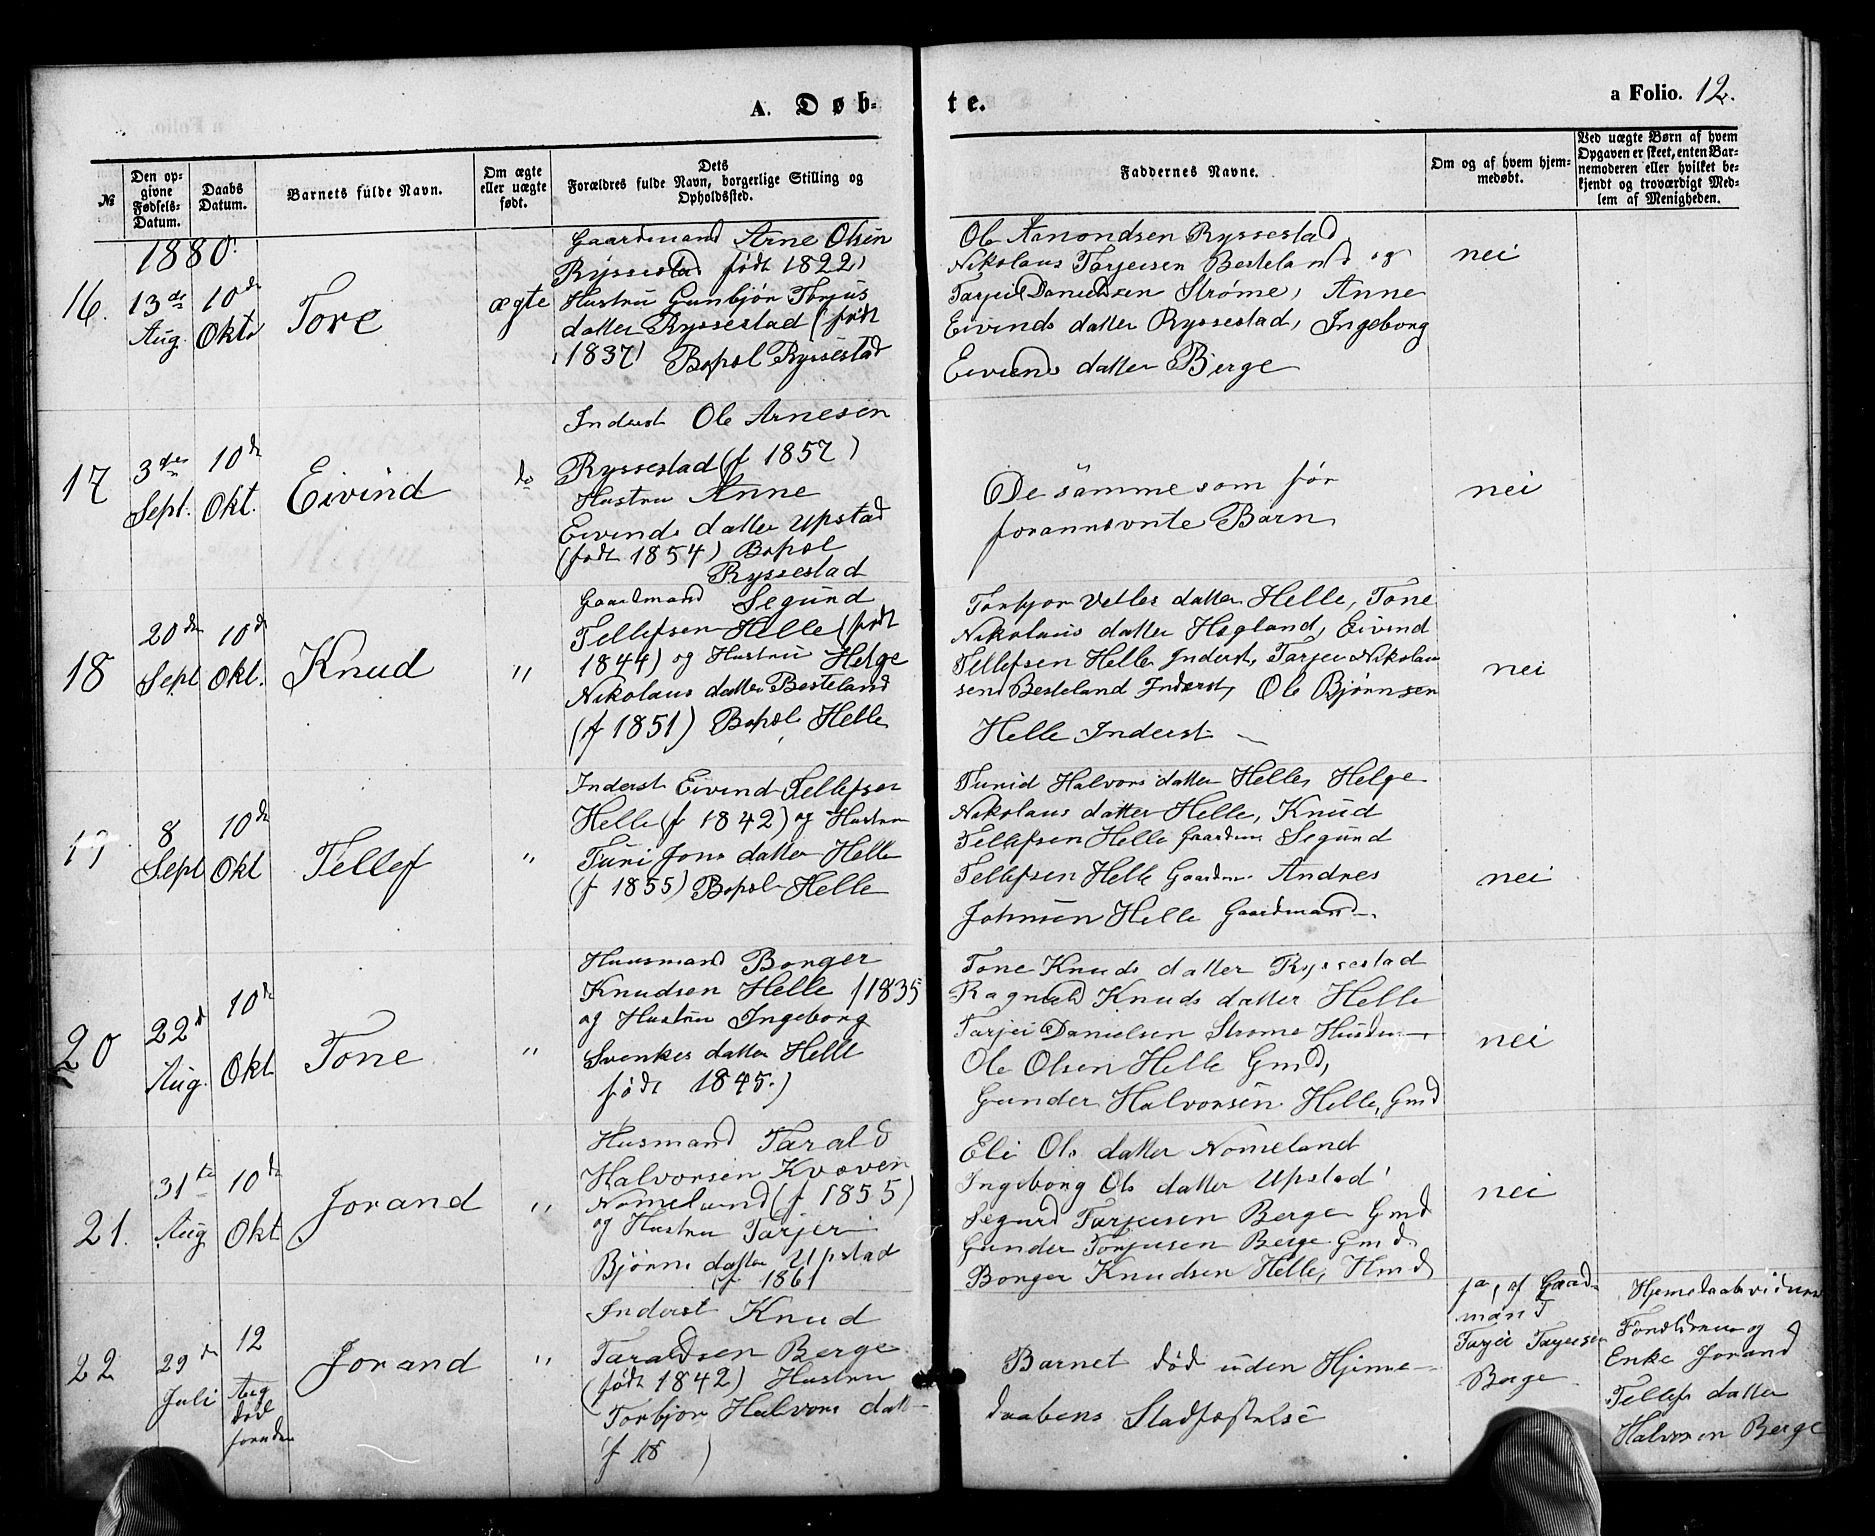 A. Døb- te.
a Folio. 12.
№
Den opgivne Fødsels-Datum.
Daabs Datum.
Barnets fulde Navn.
Om ægte eller uægte født.
Dets Forældres fulde Navn, borgerlige Stilling og Opholdssted.
Faddernes Navne.
Om og af hvem hjemmedøbt.
Ved uægte Børn af hvem Opgaven er skeet, enten Barnemoderen eller hvilket bekjendt og troværdigt Medlem af Menigheden.
1880.
16.
13de Aug.
10de Okt.
Tore
ægte
Gaardmand Arne Olsen
Ryssestad født 1822,
Hustru Gunbjør Torjus
datter Ryssestad (født
1837) Bopæl Ryssestad
Ole Aamondsen Ryssestad
Nikolaus Tarjeisen Besteland og
Tarjei Danielsen Strøme, Anne
Eivinds datter Ryssestad, Ingeborg
Eivinds datter Berge
nei
17
3die Sept.
10de Okt.
Eivind
do
Inderst Ole Arnesen
Ryssestad (f 1857)
Hustru Anne
Eivinds datter Upstad
(født 1854) Bopæl
Ryssestad
De samme som før
forannævnte Barn
nei
18
20de Sept
10de Okt.
Knud
"
Gaardmand Segund
Tellefsen Helle (født
1844) og Hustru Helge
Nikolaus datter Besteland
(f 1851) Bopæl Helle
Torbjør Vetles datter Helle, Tone
Nikolaus datter Hegland, Eivind
Tellefsen Helle Inderst, Tarjei Nikolau
sen Besteland Inderst, Ole Bjørnsen
Helle Inderst
nei
19
8 Sept
10de Okt
Tellef
"
Inderst Eivind Tellefsen
Helle (f 1842) og Hustru
Turi Jons datter Helle
(f 1855) Bopæl Helle
Turid Halvors datter Helle, Helge
Nikolaus datter Helle, Knud
Tellefsen Helle Gaardm Segund
Tellefsen Helle Gaardm. Andres
Johnsen Helle Gaardmand
nei
20
22de Aug.
10de Okt
Tone
"
Huusmand Bonger
Knudsen Helle f1835
og Hustru Ingeborg
Svenkes datter Helle
født 1845.)
Tone Knuds datter Ryssestad
Ragnild Knuds datter Helle
Tarjei Danielsen Strøme Husm
Ole Olsen Helle Gmd,
Gunder Halvorsen Helle, Gmd
nei
21.
31te Aug
10de Okt
Jorand
"
Husmand Tarald
Halvorsen Kvæven
Nomeland (f 1855)
og Hustru Tarjer
Bjørns datter Upstad
f 1861
Eli Ols datter Nomeland
Ingeborg Ols datter Upstad
Segurd Tarjeisen Berge Gmd
Gunder Torjusen Berge Gmd
Bonger Knudsen Helle, Hmd
nei
22
29de Juli
12 Aug død foruden
Jorand
"
Inderst Knud
Taraldsen Berge
(født 1842) Hustru
Torbjør Halvors datt
(f 18 )
Barnet død uden Hjeme
daabens Stadfæstelse
ja, af Gaard
mand
Tarjei Tarjeisen
Berge
Hjemedaabsvidner
og
Enke Jorand
Tellefs datter
Halvorsen Berge